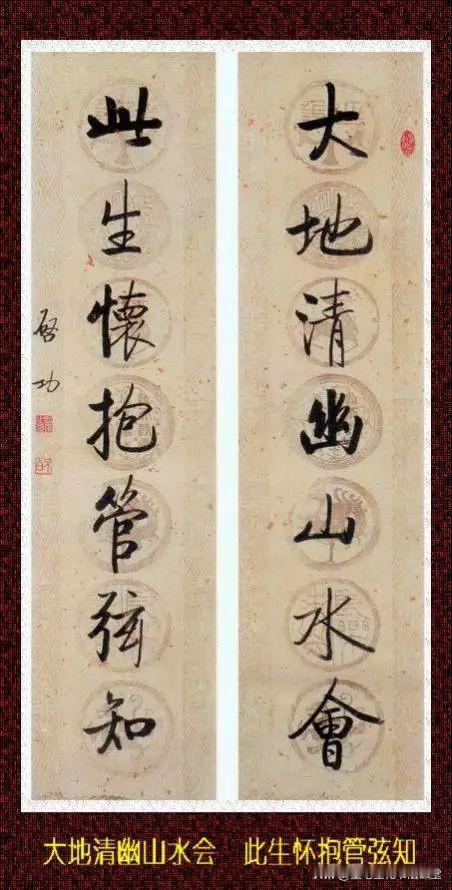 大地清幽山水會
此生懷抱管弦知
啓功
大地清幽山水会 此生怀抱管弦知